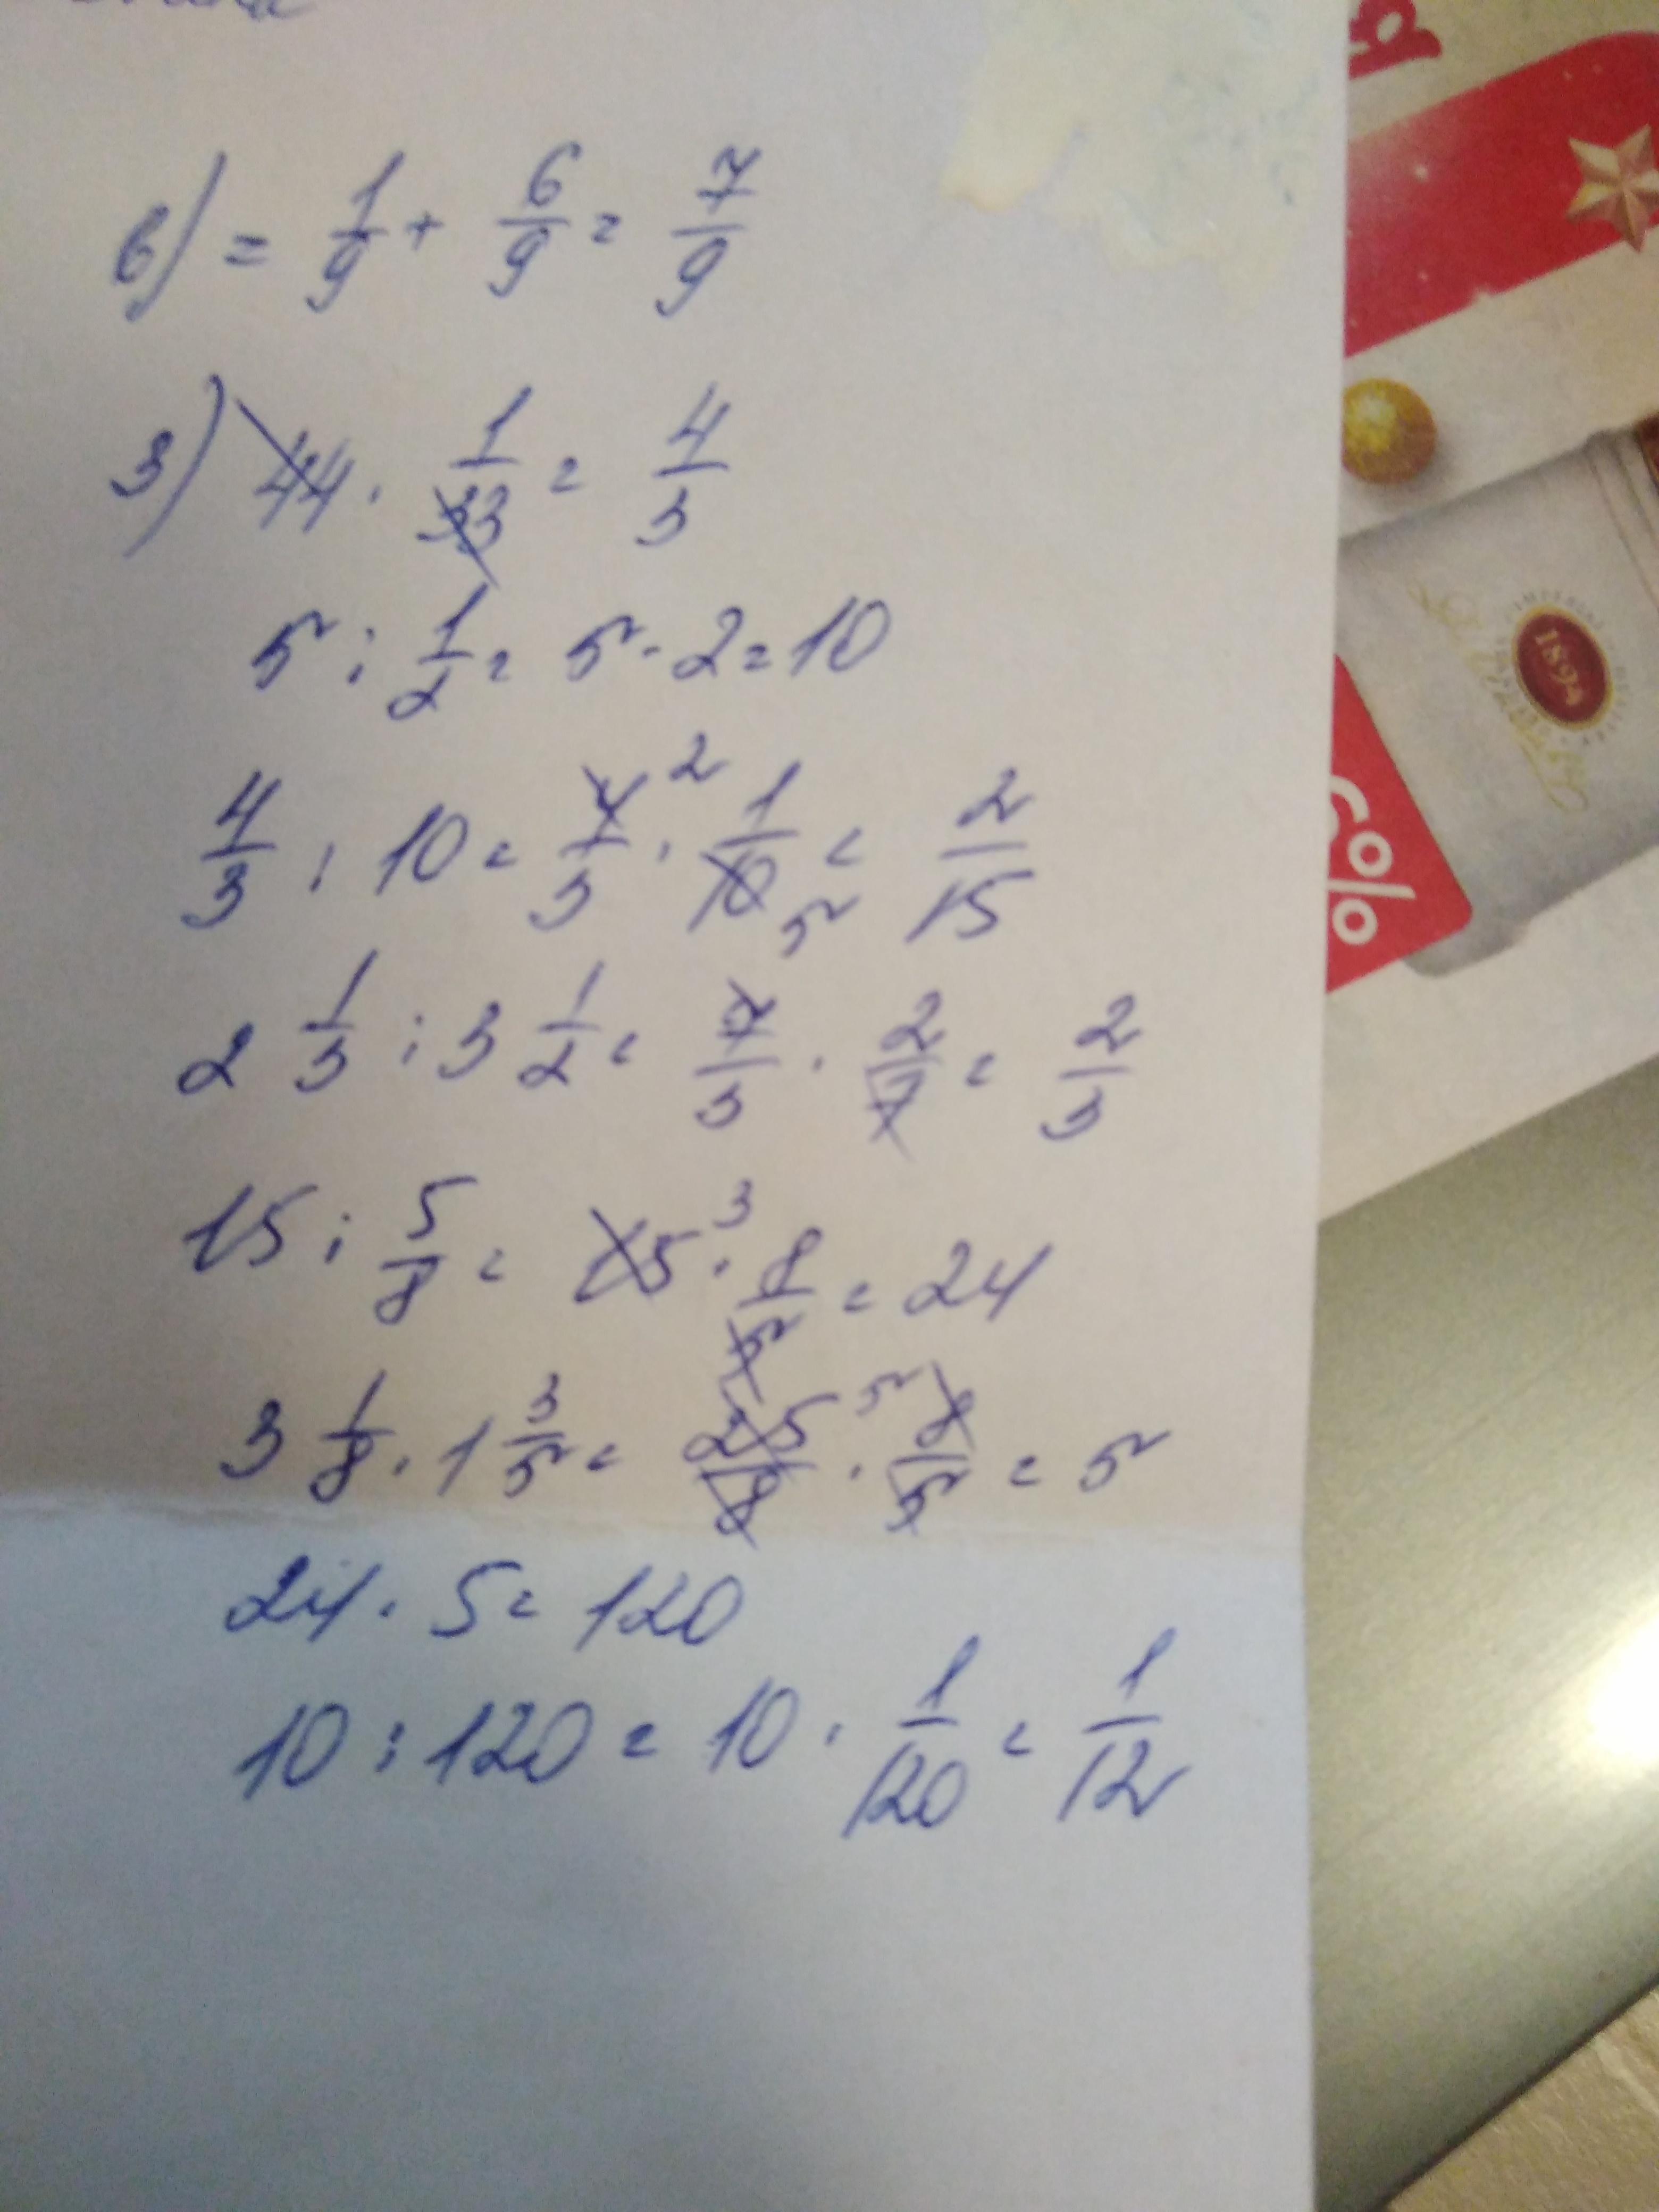 в) = 1/9 + 6/9 = 7/9
3) 44 · 1/33 = 4/3
5 : 1/2 = 5 · 2 = 10
4/3 : 10 = 4/3 2 · 1/10 5 = 2/15
2 1/3 : 3 1/2 = 7/3 · 2/7 = 2/3
15 : 5/8 = 15 3 · 8/5 = 24
3 1/8 · 1 3/5 = 25/8 5 · 8/5 = 5
24 · 5 = 120
10 : 120 = 10 · 1/120 = 1/12
1894
%